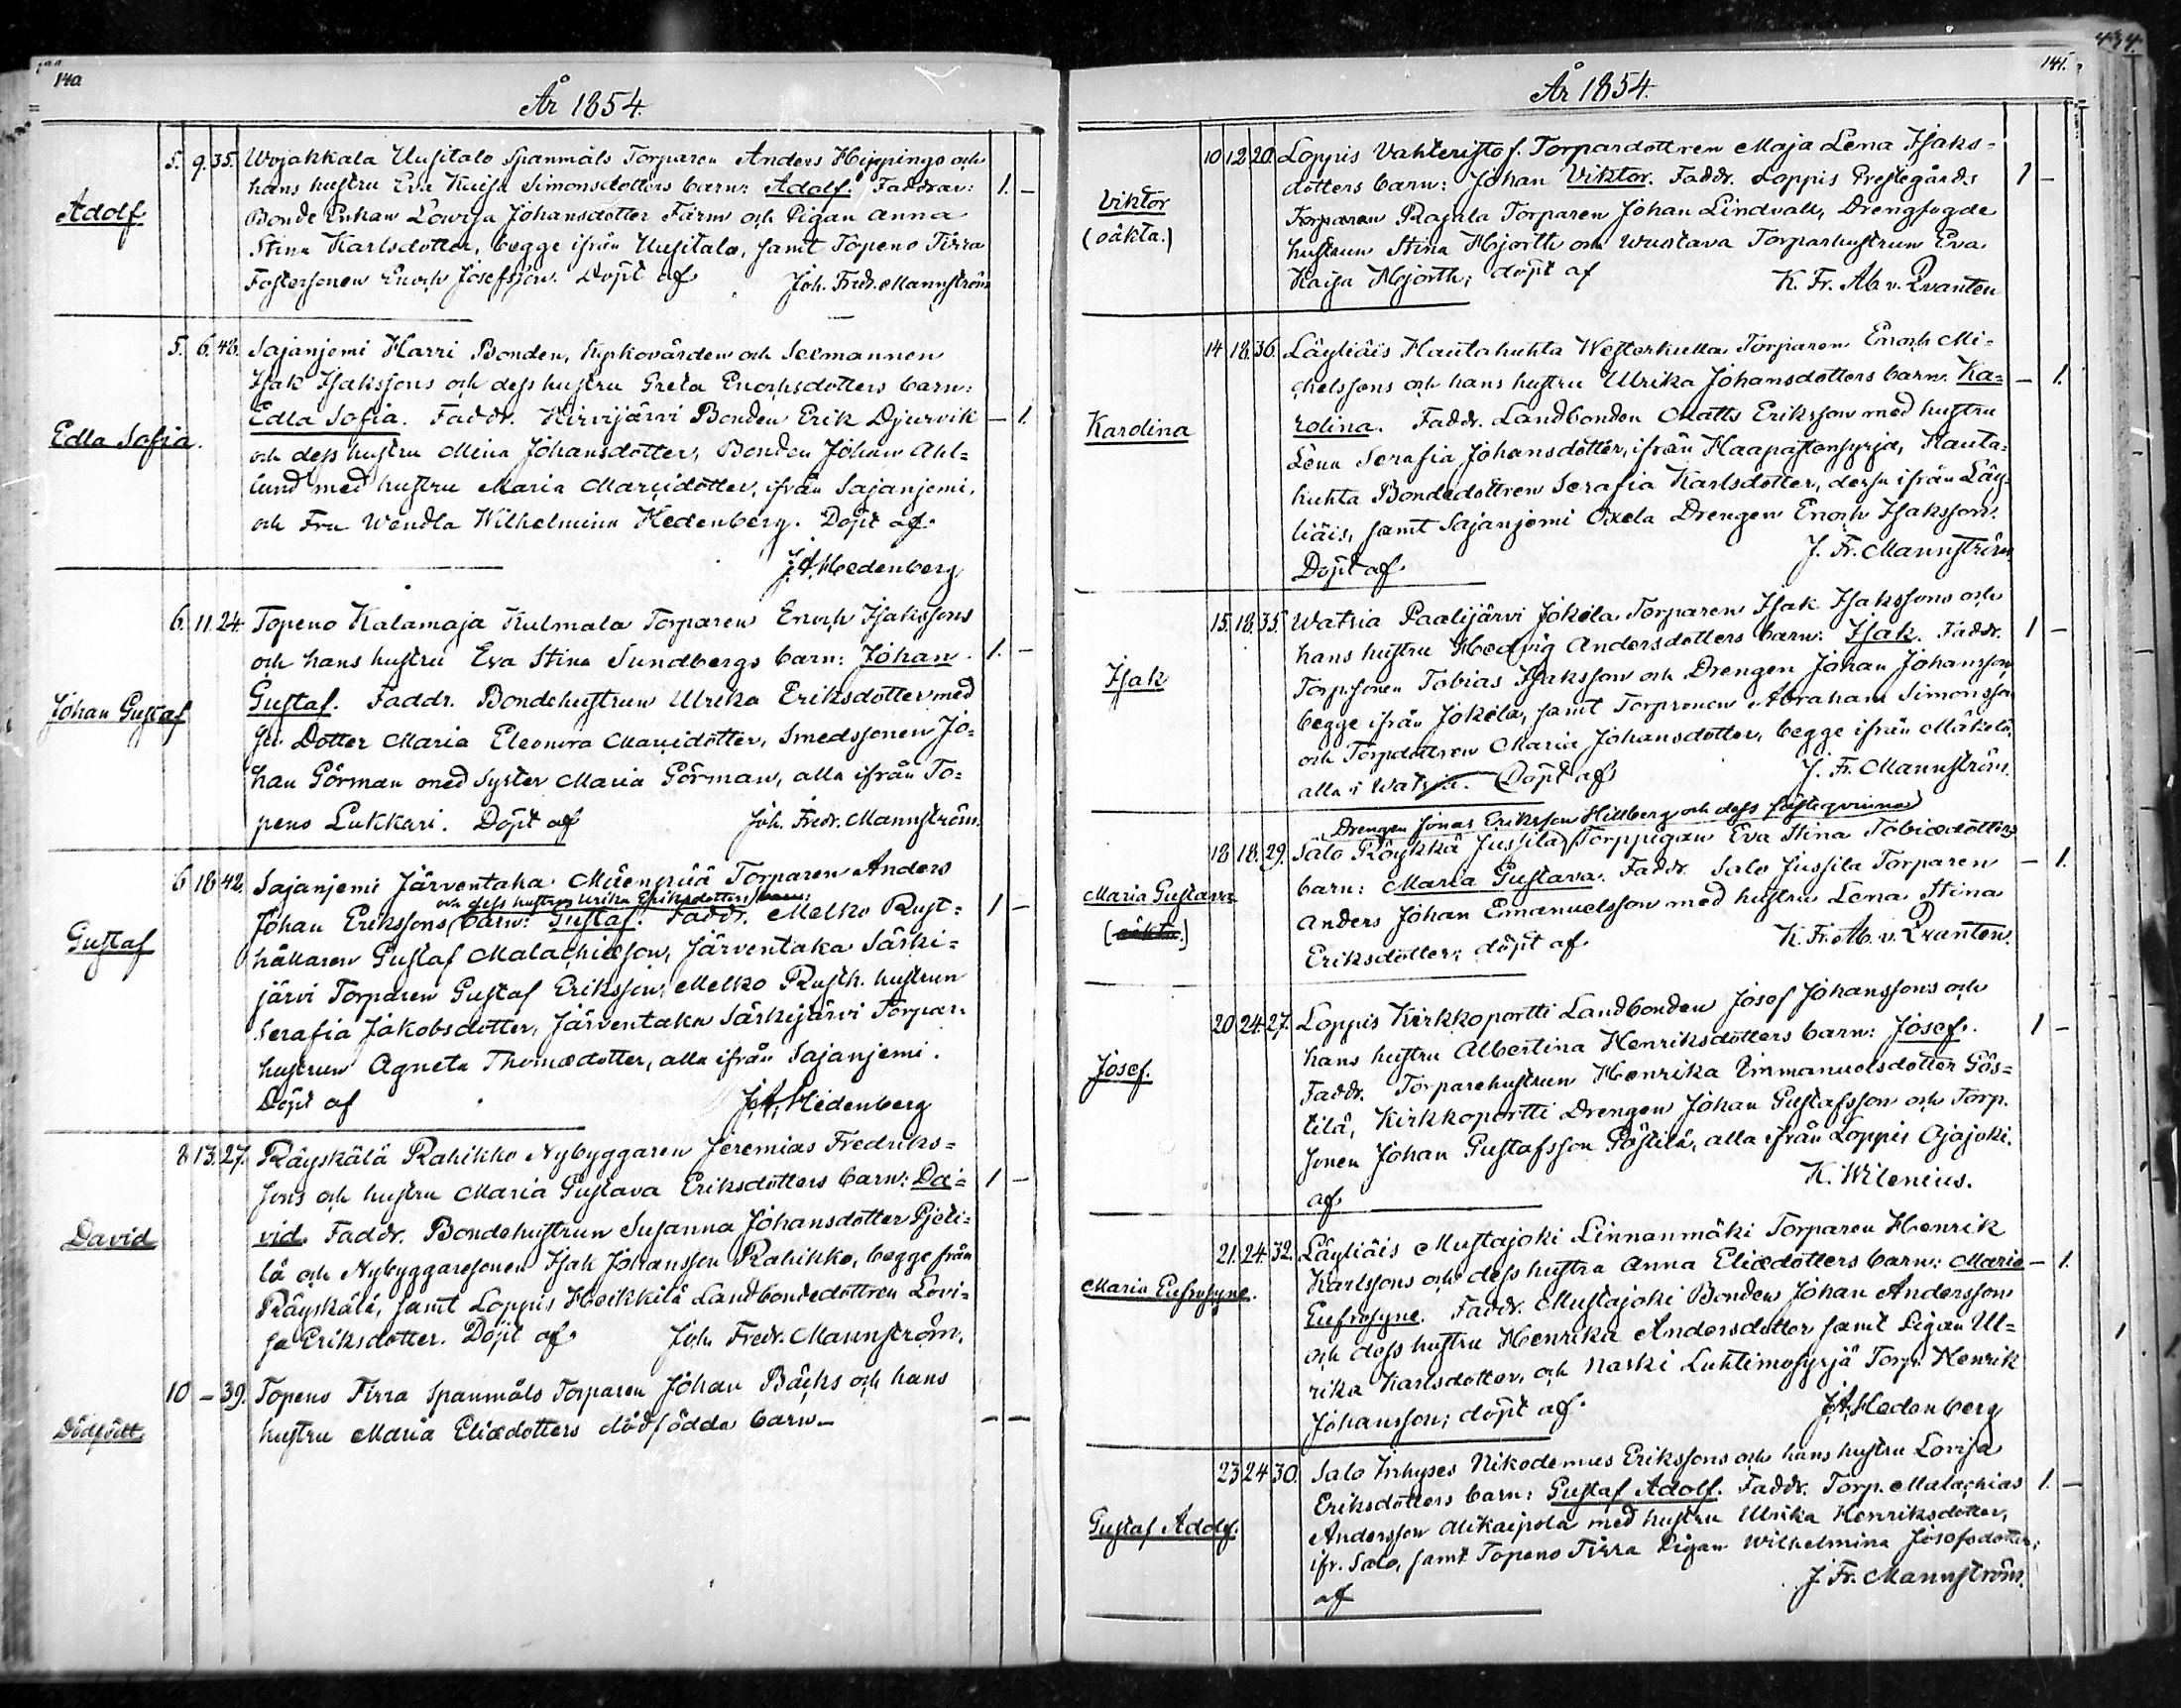 140.
År 1854.
Adolf
5. 9. 35. Wojakkala Uusitalo Spanmåls Torparen Anders Hippings och
hans hustru Eva Kaisa Simonsdotters barn: Adolf. Faddrar: 1. –
Bonde Enkan Lowisa Johansdotter Färm och Pigan Anna
Stina Karlsdotter, begge ifrån Uusitalo, samt Topeno Tirra
Fostersonen Enoch Josefsson. Döpt af Joh. Fredr. Mannström
Edla Sofia.
5. 6. 48. Sajaniemi Harri Bonden, Kyrkovärden och Sexmannen
Isak Isakssons och dess hustru Greta Enochsdotters barn:
Edla Sofia. Faddr. Hirvijärvi Bonden Erik Djurvik – 1.
och dess hustru Mina Johansdotter, Bonden Johan Ahl=
lund med hustru Maria Mariidotter, ifrån Sajaniemi,
och Fru Wendla Wilhelmina Hedenberg. Döpt af
J. A. Hedenberg
Johan Gustaf
6. 11. 24. Topeno Kalamaja Kulmala Torparen Enoch Isakssons
och hans hustru Eva Stina Sundbergs barn: Johan 1. –
Gustaf. Faddr. Bondehustrun Ulrika Eriksdotter med
Dotter Maria Eleonora Mariidotter, Smedssonen Jo=
han Görman med Syster Maria Görman, alla ifrån To=
peno Lukkari. Döpt af Joh. Fredr. Mannström.
Gustaf
6 18 42. Sajaniemi Järventaka Mäenpää Torparen Anders
och dess hustrus Ulrika Eriksdotters barn:
Johan Erikssons barn: Gustaf. Faddr. Melko Rust= 1 –
hållaren Gustaf Malachiæson, Järventaka Särki=
järvi Torparen Gustaf Eriksson, Melko Rusth. hustrun
Serafia Jakobsdotter, Järventaka Särkijärvi Torpar.
hustrun Agneta Thomædotter, alla ifrån Sajaniemi.
Döpt af J. A. Hedenberg
David
8. 13. 27. Räyskälä Rahikko Nybyggaren Jeremias Fredriks=
sons och hustru Maria Gustava Eriksdotters barn: Da= 1 –
vid. Faddr. Bondehustrun Susanna Johansdotter Pjeti=
lä och Nybyggaresonen Isak Johansson Rahikko, begge från
Räyskälä, samt Loppis Heikkilä Landbondedottren Lovi=
sa Eriksdotter. Döpt af Joh. Fredr. Mannström.
Dödfödt.
10 – 39. Topeno Tirra Spanmåls Torparen Johan Bäcks och hans
hustru Maria Eliædotters dödfödda barn – – –
434.
141.
År 1854.
Viktor
(oäkta.)
10 12 20. Loppis Vahteristo f. Torpardottren Maja Lena Isaks=
dotters barn: Johan Viktor. Faddr. Loppis Prestegårds 1 –
Torparen Rajala Torparen Johan Lindvall, Drengfogde
hustrun Stina Hjorth och Wuotava Torparhustrun Eva
Kaisa Hjorth; döpt af K. Fr. Ab. v. Qvanten
Karolina
14 18. 36. Läyliäis Hautahuhta Westerkulla Torparen Enoch Mi=
chelssons och hans hustru Ulrika Johansdotters barn: Ka= – 1.
rolina. Faddr. Landbonden Matts Eriksson med hustru
Lena Serafia Johansdotter, ifrån Haapastensyrjä, Hauta=
huhta Bondedottren Serafia Karlsdotter, dessa ifrån Läy=
liäis, samt Sajaniemi Oxela Drengen Enoch Isaksson.
Döpt af J. Fr. Mannström
Isak
15. 18. 35. Watsia Paalijärvi Jokela Torparen Isak Isakssons och
hans hustru Hedvig Andersdotters barn: Isak. Faddr. 1 –
Torpsonen Tobias Isaksson och Drengen Johan Johansson
begge ifrån Jokela, samt Torpsonen Abraham Simonsson
och Torpdottren Maria Johansdotter, begge ifrån Mäkelä,
alla i Watsia. Döpt af J. Fr. Mannström.
Maria Gustava
(oäkta.)
Drengen Jonas Eriksson Hillberg och dess fästeqvinnas
18 18. 29. Salo Röykkä Jussila Torppigan Eva Stina Tobiædotters
barn: Maria Gustava. Faddr. Salo Jussila Torparen – 1.
Anders Johan Emanuelsson med hustru Lena Stina
Eriksdotter; döpt af K. Fr. Ab. v. Qvanten.
Josef.
20. 24. 27. Loppis Kirkkoportti Landbonden Josef Johanssons och
hans hustru Albertina Henriksdotters barn: Josef. 1 –
Faddr. Torparehustrun Henrika Emmanuelsdotter Pös=
tilä, Kirkkoportti Drengen Johan Gustafsson och Torp.
sonen Johan Gustafsson Pöstilä, alla ifrån Loppis Ojajoki.
af K. Wilenius.
Maria Eufrosyne.
21. 24. 32. Läyliäis Mustajoki Linnanmäki Torparen Henrik
Karlssons och dess hustru Anna Eliædotters barn: Maria – 1.
Eufrosyne. Faddr. Mustajoki Bonden Johan Andersson
och dess hustru Henrika Andersdotter samt Pigan Ul=
rika Karlsdotter, och Naski Luhtimosyrjä Torp. Henrik
Johansson; döpt af J. A. Hedenberg
Gustaf Adolf.
23 24 30. Salo Inhyses Nikodemus Erikssons och hans hustru Lovisa
Eriksdotters barn: Gustaf Adolf. Faddr. Torp. Malachias 1. –
Andersson Alikaipola med hustru Ulrika Henriksdotter,
ifr. Salo, samt Topeno Tirra Pigan Wilhelmina Josefsdotter;
af J. Fr. Mannström.